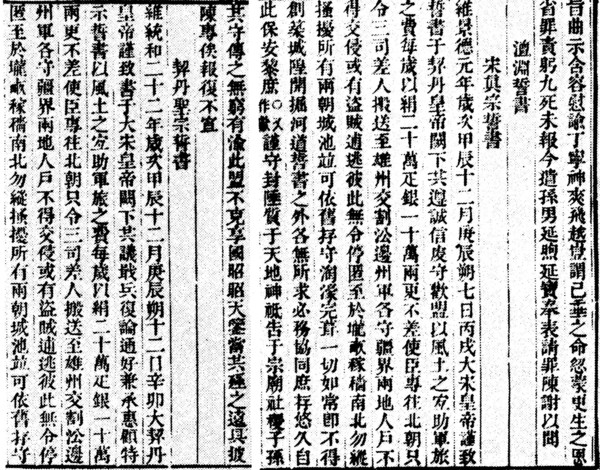 旨曲示含容慰諭丁寧神爽飛越豈謂已棄之命忽蒙更生之恩
省罪責躬九死未報今遣孫男延煦延寶奉表請罪陳謝以聞
澶淵誓書
宋真宗誓書
維景德元年歲次甲辰十二月庚辰朔七日丙戌大宋皇帝謹致
誓書于契丹皇帝闕下共遵誠信虔守歡盟以風土之宜助軍旅
之費每歲以絹二十萬疋銀一十萬兩更不差使臣專往北朝只
令三司差人搬送至雄州交割沿邊州軍各守疆界兩地人戶不
得交侵或有盜賊逋逃彼此無令停匿至於壠畝稼穡南北勿縱
搔擾所有兩朝城池並可依舊存守淘濠完葺一切如常即不得
創築城隍開掘河道誓書之外各無所求必務協同庶存悠久自
此保安黎庶謹守封陲質于天地神祇告于宗廟社稷子孫
共守傳之無窮有渝此盟不克享國昭昭天鑒當共殛之遠具披
陳專俟報復不宣
契丹聖宗誓書
維統和二十二年歲次甲辰十二月庚辰朔十二日辛卯大契丹
皇帝謹致書于大宋皇帝闕下共議戢兵復論通好兼承惠顧特
示誓書以風土之宜助軍旅之費每歲以絹二十萬疋銀一十萬
兩更不差使臣專往北朝只令三司差人搬送至雄州交割沿邊
州軍各守疆界兩地人戶不得交侵或有盜賊逋逃彼此無令停
匿至於壠畝稼穡南北勿縱搔擾所有兩朝城池並可依舊存守